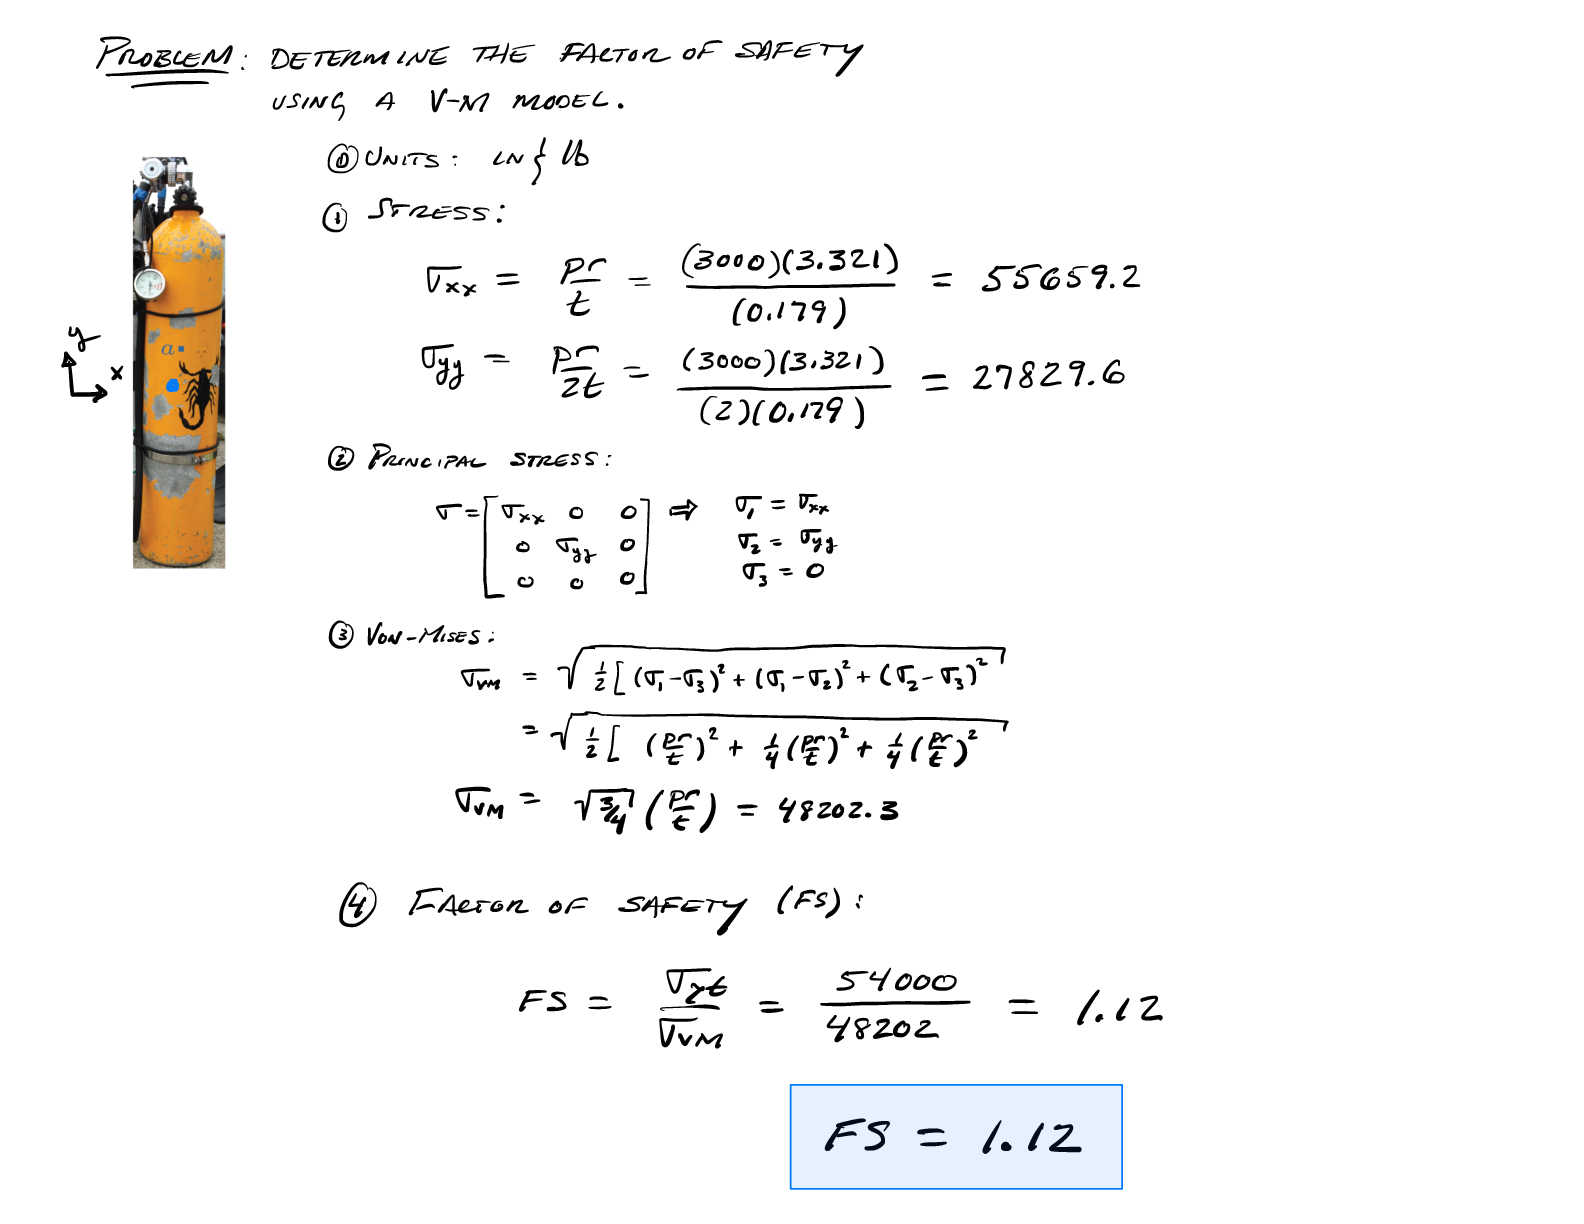 PROBLEM: DETERMINE THE FACTOR OF SAFETY
USING A V-M MODEL.
⓪ UNITS: IN & lb
① STRESS:
σxx = pr/t = (3000)(3.321)/(0.179) = 55659.2
σyy = pr/2t = (3000)(3.321)/(2)(0.179) = 27829.6
y
x
a
② PRINCIPAL STRESS:
σ = [σxx 0 0 ⇒ σ1 = σxx
0 σyy 0 σ2 = σyy
0 0 0] σ3 = 0
③ VON-MISES:
σVM = √1/2[(σ1-σ3)² + (σ1-σ2)² + (σ2-σ3)²
= √1/2[(pr/t)² + 1/4(pr/t)² + 1/4(pr/t)²
σVM = √3/4 (pr/t) = 48202.3
④ FACTOR OF SAFETY (FS):
FS = σyt/σVM = 54000/48202 = 1.12
FS = 1.12